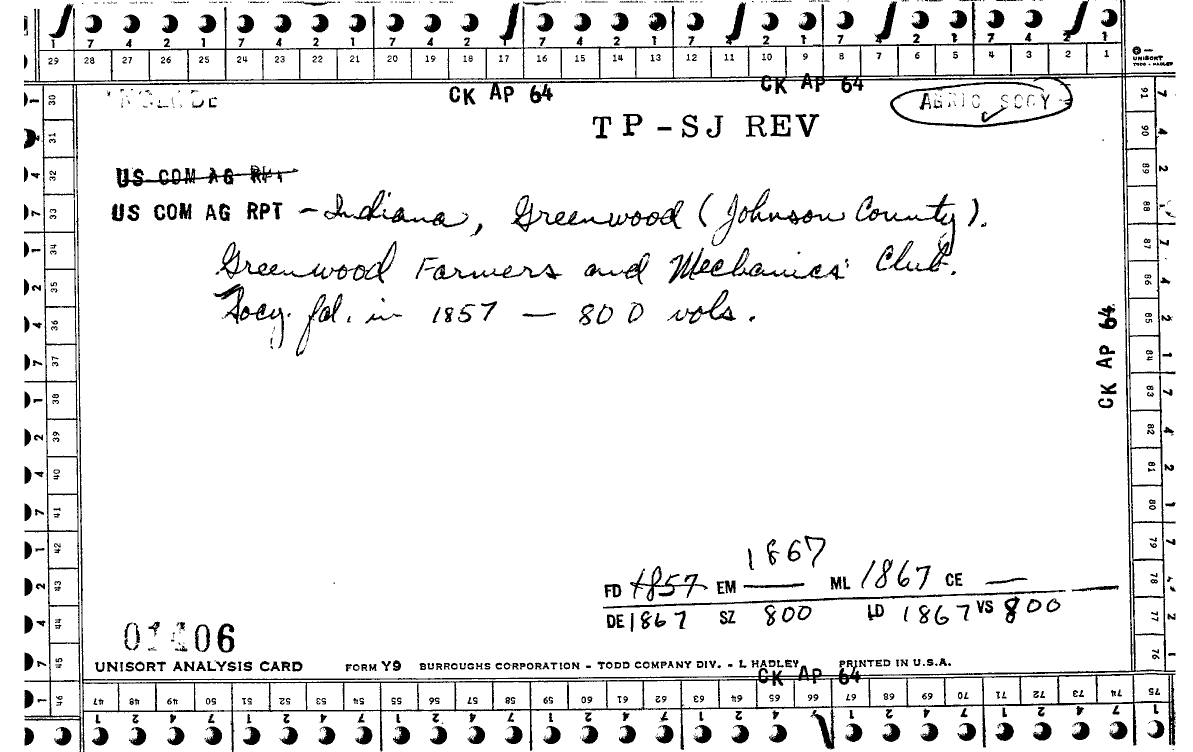 1 7 4 2 1 7 4 2 1 7 4 2 1 7 4 2 1 7 4 2 1 7 4 2 1 7 4 2 1
29 28 27 26 25 24 23 22 21 20 19 18 17 16 15 14 13 12 11 10 9 8 7 6 5 4 3 2 1
UNISORT
TODD - HADLEY
CK AP 64 CK AP 64
AGRIC SOCY
TP-SJ REV
US COM AG RPT
US COM AG RPT - Indiana, Greenwood (Johnson County).
Greenwood Farmers and Mechanics' Club.
Socy. fd. in 1857 — 800 vols.
CK AP 64
1867
FD 1857 EM ML 1867 CE —
DE 1867 SZ 800 LD 1867 VS 800
01406
UNISORT ANALYSIS CARD FORM Y9 BURROUGHS CORPORATION - TODD COMPANY DIV. - L HADLEY PRINTED IN U.S.A.
CK AP 64
30 31 32 33 34 35 36 37 38 39 40 41 42 43 44 45 46
91 90 89 88 87 86 85 84 83 82 81 80 79 78 77 76 75
47 48 49 50 51 52 53 54 55 56 57 58 59 60 61 62 63 64 65 66 67 68 69 70 71 72 73 74